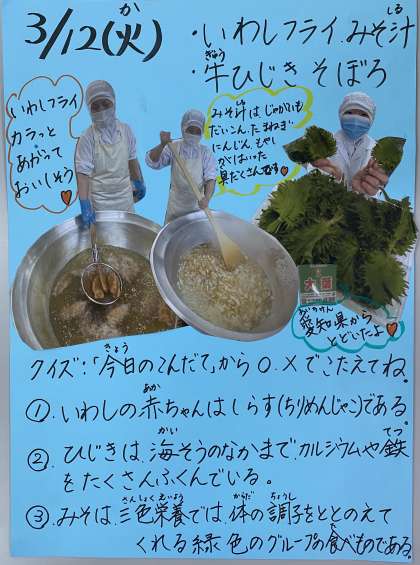 3/12(火)
・いわしフライ.みそ汁
・牛ひじきそぼろ
いわしフライ
カラッと
あがって
おいしそう
みそ汁は.じゃがいも
だいこん.たまねぎ
にんじん.もやし
がはいった
具だくさんです
大葉
愛知県から
とどいたよ
クイズ:「今日のこんだて」から〇.×でこたえてね。
①.いわしの赤ちゃんはしらす(ちりめんじゃこ)である。
②.ひじきは.海そうのなかまで.カルシウムや鉄
をたくさんふくんでいる。
③.みそは.三色栄養では.体の調子をととのえて
くれる緑色のグループの食べものである。